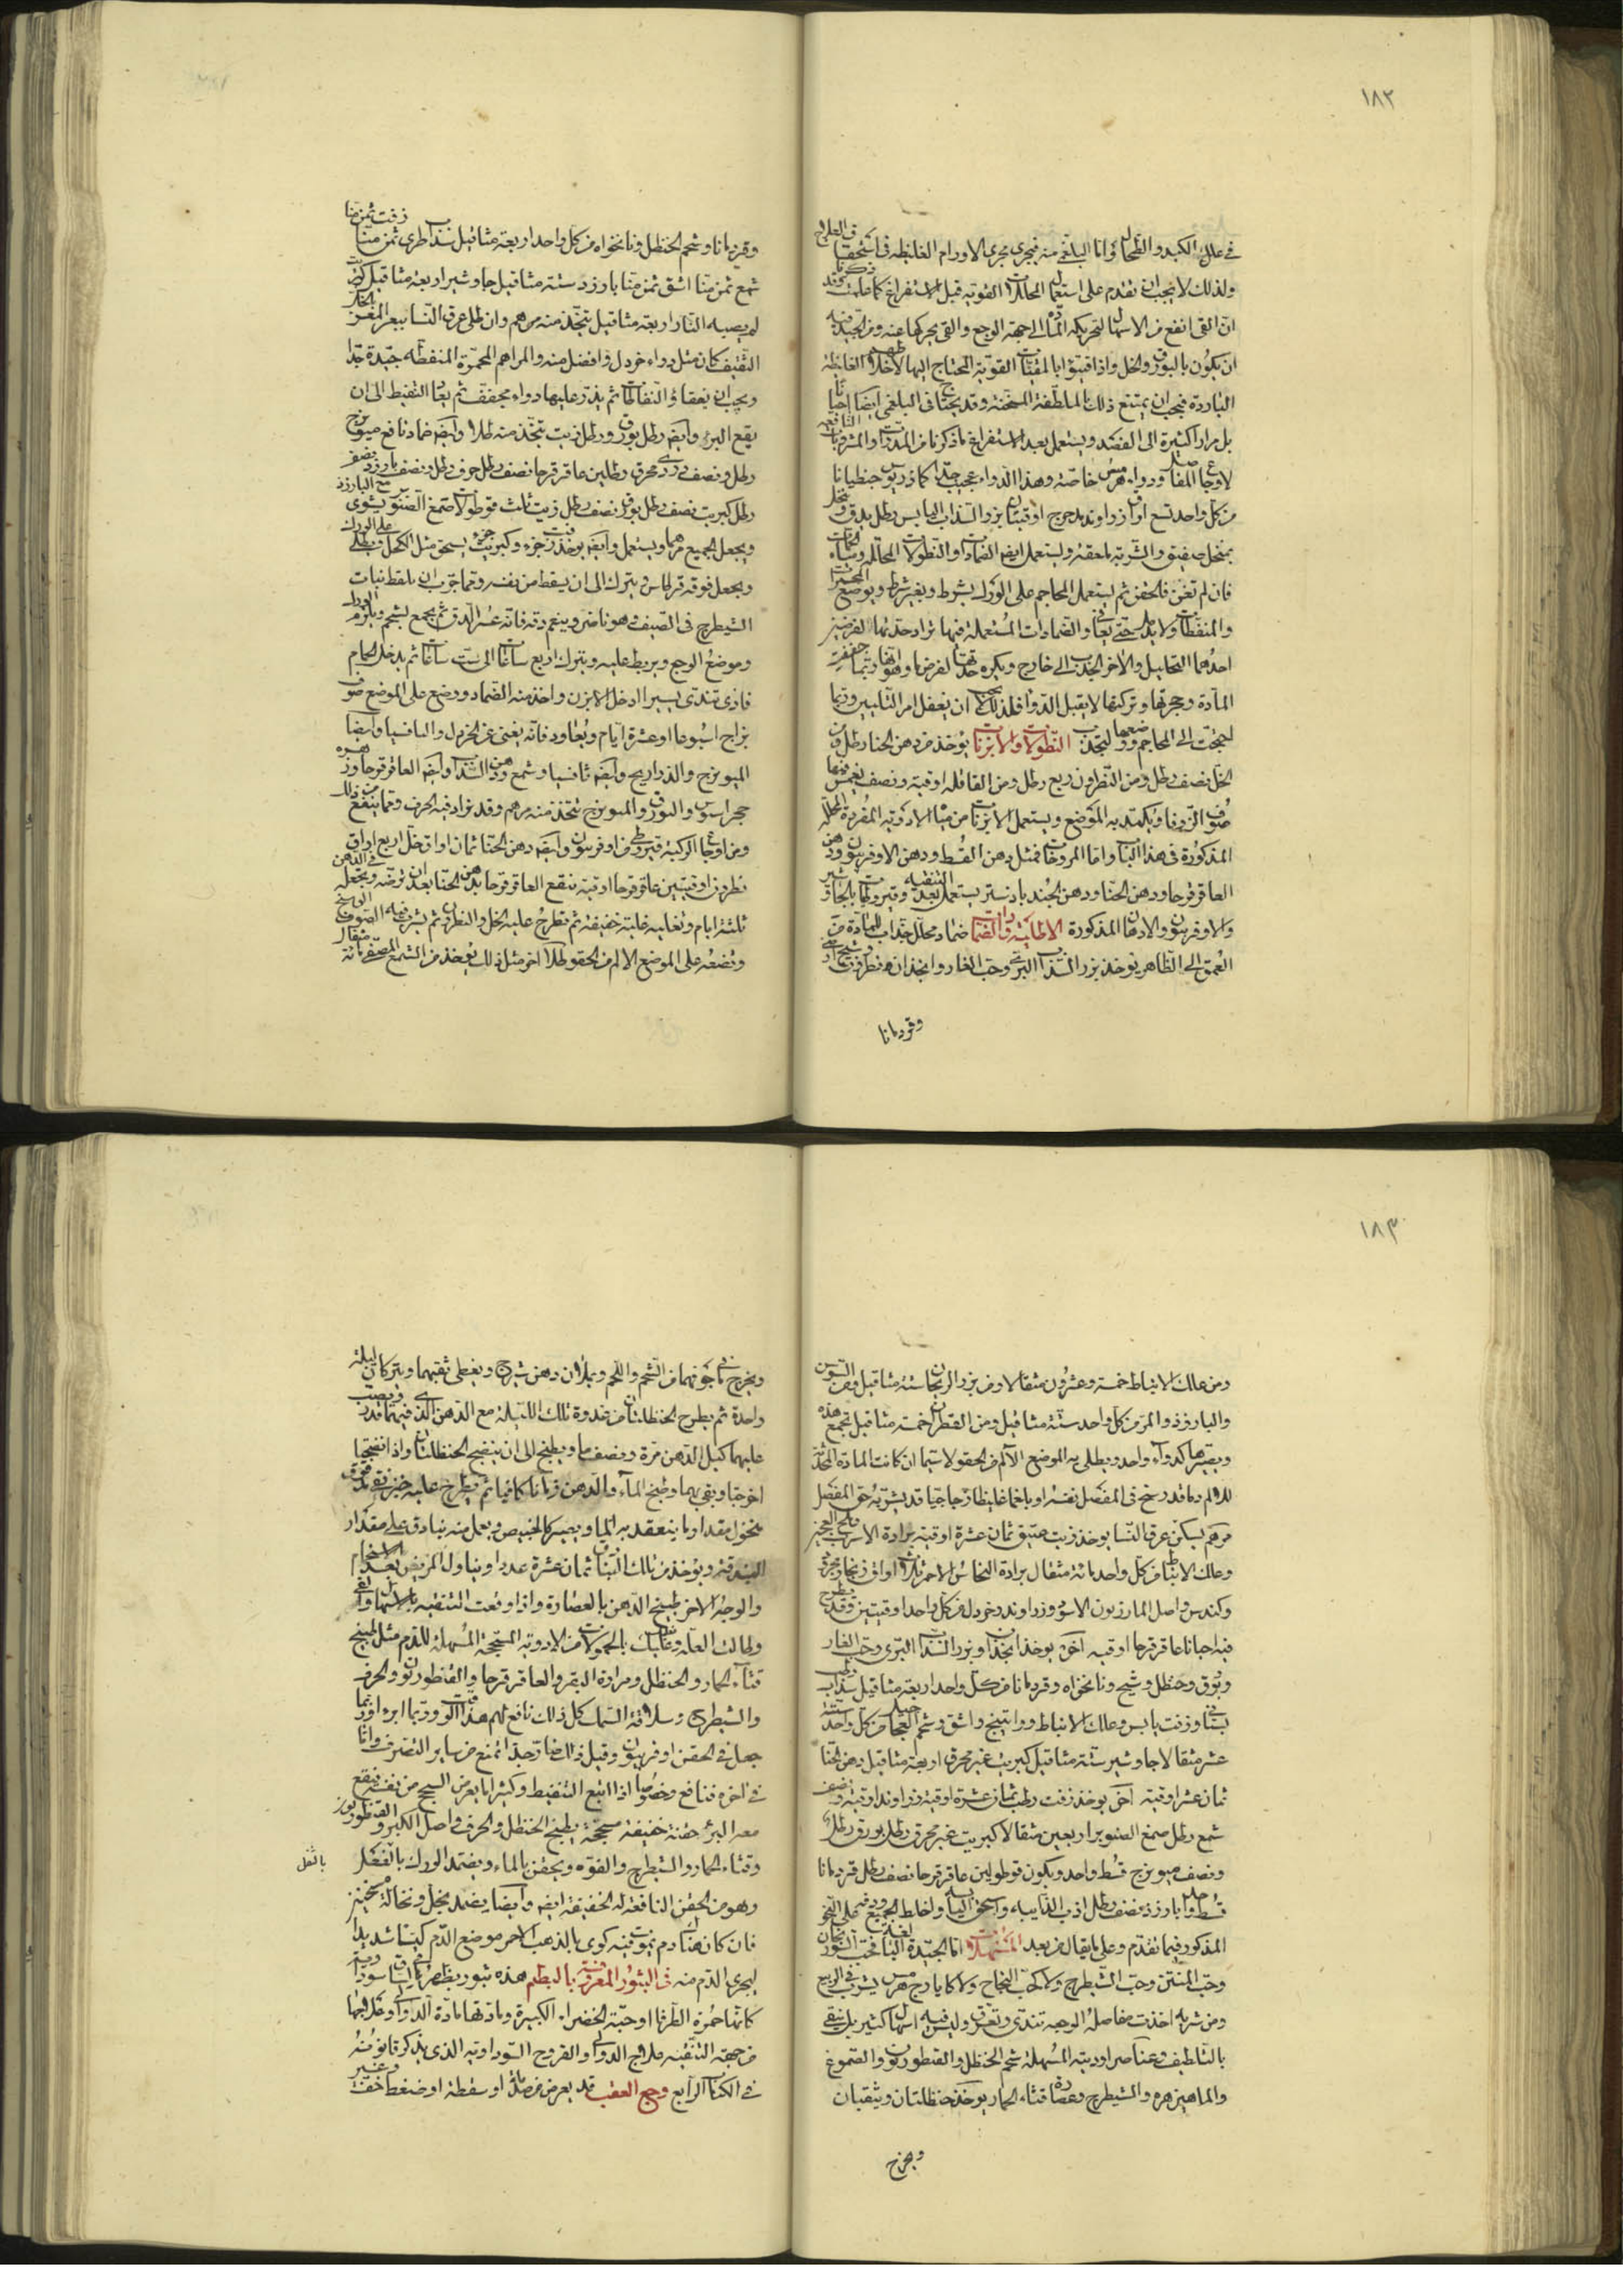 ١٨٢
في علل الكبد والطحال واما البلغمى منه فيجرى مجرى الاورام الغليظة فى استحقاق العلاج
ولذلك لا يجب ان تقدم على استعمال المحللات القوية قبل الاستفراغ كما علمت وقد ذكرنا
ان القى انفع من الاسهال لتحريكه المادة الى جهة الوجع والقى يحركها عنه ومن الجيد فيه
ان يكون بالبورق والخل واذا قيئوا بالمقيئات القوية المحتاج اليها لاخلاطهم الغليظة
الباردة فيجب ان يتبع ذلك بالملطفة المسخنة وقد يحتاج فى البلغمى ايضا احيانا
بل مرارا كثيرة الى الفصد ويستعمل بعد الاستفراغ ما ذكرنا من المدرات والمشروبات النافعة
لاوجاع المفاصل ودواء هرمس خاصة وهذا الدواء عجيب جدا كمادريوس جنطيانا
من كل واحد تسع اواق زراوند مدحرج اوقيتان بزر السذاب اليابس رطل يدق وينخل
بمنخل صفيق والشربة ملعقة ويستعمل ايضا الضمادات والنطولات المحللة ومياه الحمات
فان لم تغن فالحقن ثم يستعمل المحاجم على الورك بشرط وبغير شرط ويوضع المحمرات
والمنفطات ولا يندمل حتى يعافى والضمادات المستعملة فيها تراد حدتها لغرضين
احدهما التحليل والآخر الجذب الى خارج ويكره حدتها لغرض ما وهو انها ربما جففت
المادة وحجرتها وتركتها لا يقبل الدواء فلذلك لا يجب ان يغفل امر التليين وربما
احتجت الى المحاجم ووضعها لتجذب النطولات والابزنات يوخذ من دهن الحنا رطل ومن
الخل نصف رطل ومن النطرون ربع رطل ومن القاقلة اوقية ونصف يغمس فيها
صوف الزوفا ويكمد به الموضع ويستعمل الابزنات من مياه الادوية المفردة المحللة
المذكورة فى هذا الباب واما المروخات فمثل دهن القسط ودهن الاوفربيون ودهن
العاقرقرحا ودهن الحنا ودهن الجندبادستر يستعمل بعد التنقية وقيروطيات بالجاوشير
والاوفربيون والادهان المذكورة الاطلية والضمادات ضماد محلل جذاب للمادة من
العمق الى الظاهر يوخذ بزر السذاب البرى وحب الغار وانجذان ونطرون وشيح
وقردمانا
وقردمانا وشحم الحنظل ونانخواه من كل واحد اربعة مثاقيل سذاب طرى ثمن منا زفت ثمن منا
شمع ثمن منا اشق ثمن منا بارزد ستة مثاقيل جاوشير اربعة مثاقيل كبريت
لم يصبه النار اربعة مثاقيل تتخذ منه مرهم وان طلى عرق النسا ببعر المعز بالخل
الثقيف كان مثل دواء خردل او افضل منه والمراهم المحمرة المنفطة جيدة جدا
ويجب ان يفقأ النفاطات ثم يذر عليها دواء مجفف ثم يعاد التنفيط الى ان
يقع البرء وايضا رطل بورق ورطل زيت تتخذ منه طلاء وايضا ضماد نافع ميويزج
رطل ونصف دردى محرق رطلين عاقرقرحا نصف رطل حرف رطل ونصف بارزد نصف
رطل كبريت نصف رطل بورق نصف رطل زيت ثلث قوطولات صمغ الصنوبر يشوى مع البارزد
ويجعل الجميع مرهما ويستعمل وايضا يوخذ زفت جزء وكبريت جزء يسحق مثل الكحل ويطلى على الورك
ويجعل فوقه قرطاس ويترك الى ان يسقط من نفسه ومما جرب ان يلقط نبات
الشيطرج فى الصيف وهو ناضر وينعم دقه فانه عسر الدق ثم يجمع بشحم ويلزم الورك
وموضع الوجع ويربط عليه ويترك اربع ساعات الى ست ساعات ثم يدخل الحمام
فاذى تندى يسيرا ادخل الابزن واخذ منه الضماد ووضع على الموضع صوف
يراح اسبوعا او عشرة ايام ويعاود فانه يغنى عن الخردل والثافسيا وايضا
الميويزج والذراريح وايضا ثافسيا وشمع ودهن السذاب وايضا العاقرقرحا وزهرة
حجر اسيوس والبورق والميويزج تتخذ منه مرهم وقد يزاد فيه الحرف ومما ينفع من ذلك
ومن اوجاع الركبة قيروطى من اوفربيون وايضا دهن الحنا ثمان اواق خل اربع اواق
نطرون اوقيتين عاقرقرحا اوقية تنقع العاقرقرحا بدهن الحنا بعد ان ترضه وتجعله فى الدهن
ثلثة ايام وتغليه غلية خفيفة ثم تطرح عليه الخل والنطرون ثم يشرب فيه الصوف الوسخ
وتضعه على الموضع الالم من الحقو طلاء اخر مثل ذلك يوخذ من الشمع المصفى مائة مثقال
١٨٣
ومن علك الانباط خمسة وعشرون مثقالا ومن بزر الريحان ستة مثاقيل ومن السوسن
والبارزد والمر من كل واحد ستة مثاقيل ومن القطران خمسة مثاقيل تجمع هذه
ويصيرها كدواء واحد ويطلى به الموضع الآلم من الحقو لا سيما ان كانت المادة المحدثة
للالم دما قد رسخ فى المفصل نفسه او بلغما غليظا زجاجيا قد يشربه حق المفصل
مرهم يسكن عرق النسا يوخذ زيت عتيق ثمان عشرة اوقية برادة الاسرب وملح العجين
وعلك الانباط من كل واحد مائة مثقال برادة النحاس الاحمر ثلاث اواق زنجار مجرود
وكندس واصل المازريون الاسود وزراوند وخردل من كل واحد اوقيتين وقد يطرح
فيه احيانا عاقرقرحا اوقية آخر يوخذ انجذان وبزر السذاب البرى وحب الغار
وبورق وحنظل وشيح ونانخواه وقردمانا من كل واحد اربعة مثاقيل سذاب رطب
بستانى وزفت يابس وعلك الانباط وراتينج واشق وشحم العجاجيل من كل واحد ستة
عشر مثقالا جاوشير ستة مثاقيل كبريت غير محرق اربعة مثاقيل دهن الحنا
ثمان عشر اوقية آخر يوخذ زفت رطب ثمان عشرة اوقية زراوند اوقية ونصف
شمع رطل صمغ الصنوبر اربعين مثقالا كبريت غير محرق رطل بورق رطل
ونصف ميويزج قسط واحد ويكون قوطولين عاقرقرحا نصف رطل قردمانا
قسط واحد بارزد نصف رطل اذب الذايبة واسحق اليابسة واخلط الجميع ودقه على النحو
المذكور فيما تقدم وعلى ما يقال من بعد المسهلات اما الجيدة البالغة فحب السورنجان
وحب المنتن وحب الشيطرج ولا كحب النجاح ولا كايارج هرمس يشرب فى الربيع
ومن شربه اخذت مفاصله الوجعة تندى وتعرق وليس فيه اسهال كثير بل ينقى
بالتلطيف وعناصر ادويته المسهلة شحم الحنظل والقنطوريون والصموغ
والماهيزهره والشيطرج وعصارة قثاء الحمار يوخذ حنظلتان ويثقبان
ويخرج
ويخرج ما فى جوفهما من الشحم واللحم ويملآن دهن شيرج ويغطى ثقبهما ويتركان ليلة
واحدة ثم يطرح الحنظلتان من غدوة تلك الليلة مع الدهن الذى فيهما قدر ويصب
عليهما كيل الدهن مرة ونصف ماء ويطبخ الى ان ينضج الحنظلتان واذا نضجتا
اخرجتا ورمى بهما وطبخ الماء والدهن زمانا كافيا ثم يطرح عليه خبز نقى مدقوق
منخول مقدار ما ينعقد به الماء ويصير كالخبيص ويعمل منه بنادق على مقدار
البندقة ويؤخذ من تلك البنادق ثمان عشرة عددا ويناول المريض بعد الاستحمام
والوجه الاخر طبيخ الدهن بالعصارة واذا وقعت التنقية بالاسهال والقى
وطالت العلة وعليك بالحمولات من الادوية المسحجة المسهلة للدم مثل طبيخ
قثاء الحمار والحنظل ومرارة البقر والعاقرقرحا والقنطوريون والحرف
والشيطرج وسلاقة السمك كل ذلك نافع لهم هذا الوقت وربما ابرء وربما
جعل فى الحقن اوفربيون وقيل ذلك ضار جدا تمنع من ساير التصرف واما
فى اخره فنافع وخصوصا اذا اتبع التنفيط وكثيرا ما يعرض السحج من نفسه فيقع
معه البرء حقنة خفيفة مسحجة يطبخ الحنظل والحرف واصل الكبر والقنطوريون
وقثاء الحمار والشيطرج والفوه ويحقن بالماء ويضمد الورك بالثفل
بالثفل
وهو من الحقن النافعة له الخفيفة ايضا وايضا يضمد بخل ونخالة مسخنين
فان كان هناك دم يموت فيه كوى بالذهب الاحمر موضع الدم كيا شديدا
ليجرى الدم منه فى البثور المعروفة بالبطم هذه بثور يظهر فى الساق سودا وية
كانها ثمرة الطرفا او حبة الخضراء الكبيرة ومادتها مادة الدوالى وعلاجها
من جهة التنقية علاج الدوالى والقروح السوداوية الذى يذكر قانونه
فى الكتاب الرابع وجع العقب قد يعرض من صدمة او سقطة او ضغط خف وغير